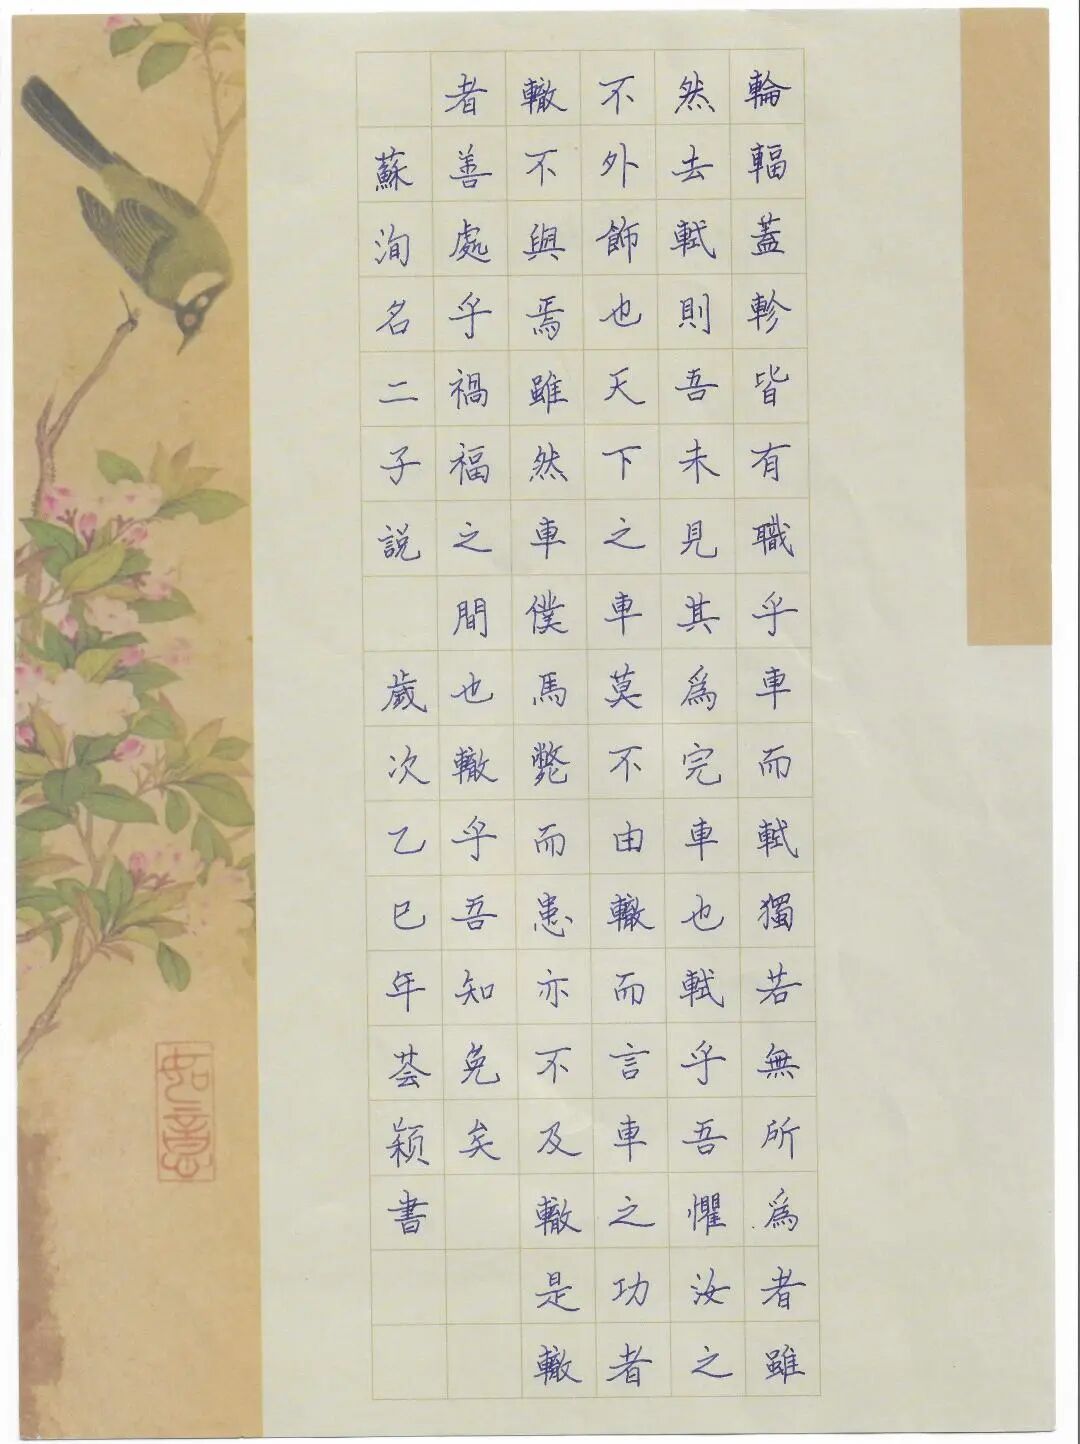 輪輻蓋軫皆有職乎車而軾獨若無所爲者雖
然去軾則吾未見其爲完車也軾乎吾懼汝之
不外飾也天下之車莫不由轍而言車之功者
轍不與焉雖然車僕馬斃而患亦不及轍是轍
者善處乎禍福之間也轍乎吾知免矣
蘇洵名二子説 歲次乙巳年荟颖書